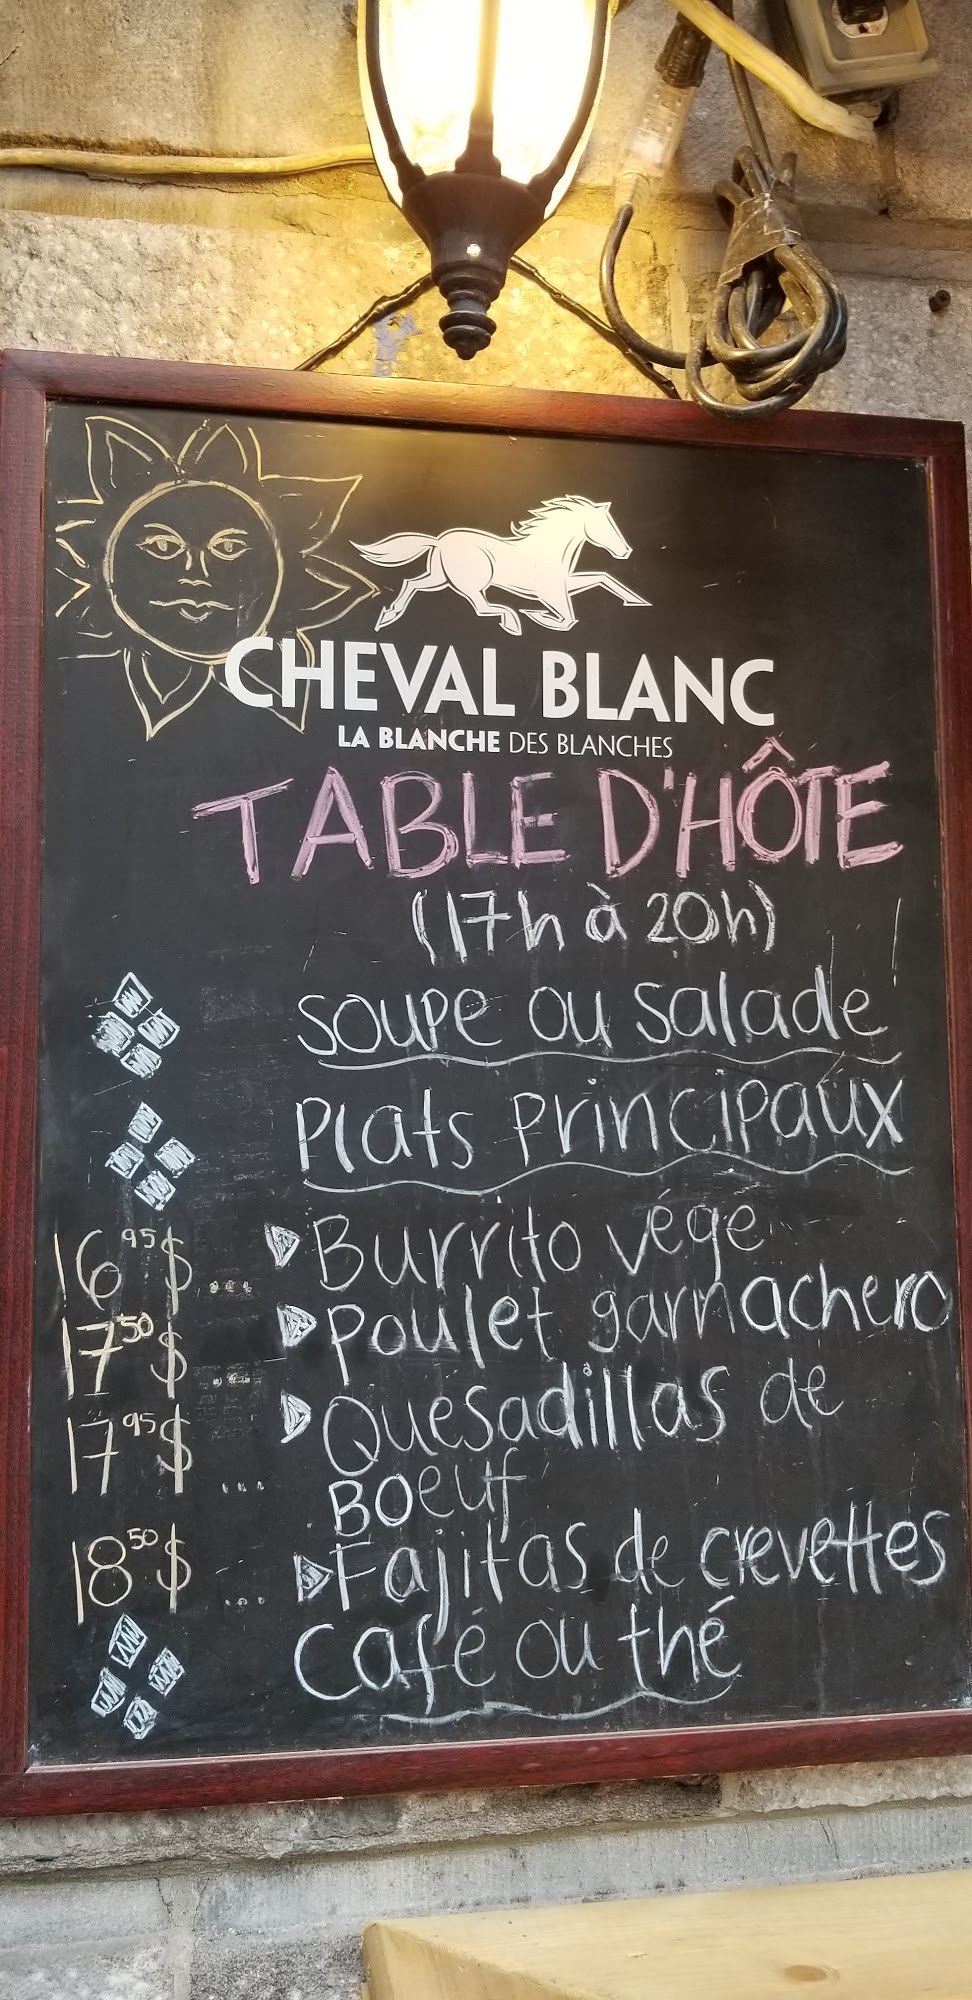 CHEVAL BLANC
LA BLANCHE DES BLANCHES
TABLE D'HÔTE
(17h à 20h)
Soupe ou salade
Plats principaux
16.95$ ... Burrito végé
17.50$ ... Poulet garnachero
17.95$ ... Quesadillas de
Boeuf
18.50$ ... Fajitas de crevettes
Café ou thé